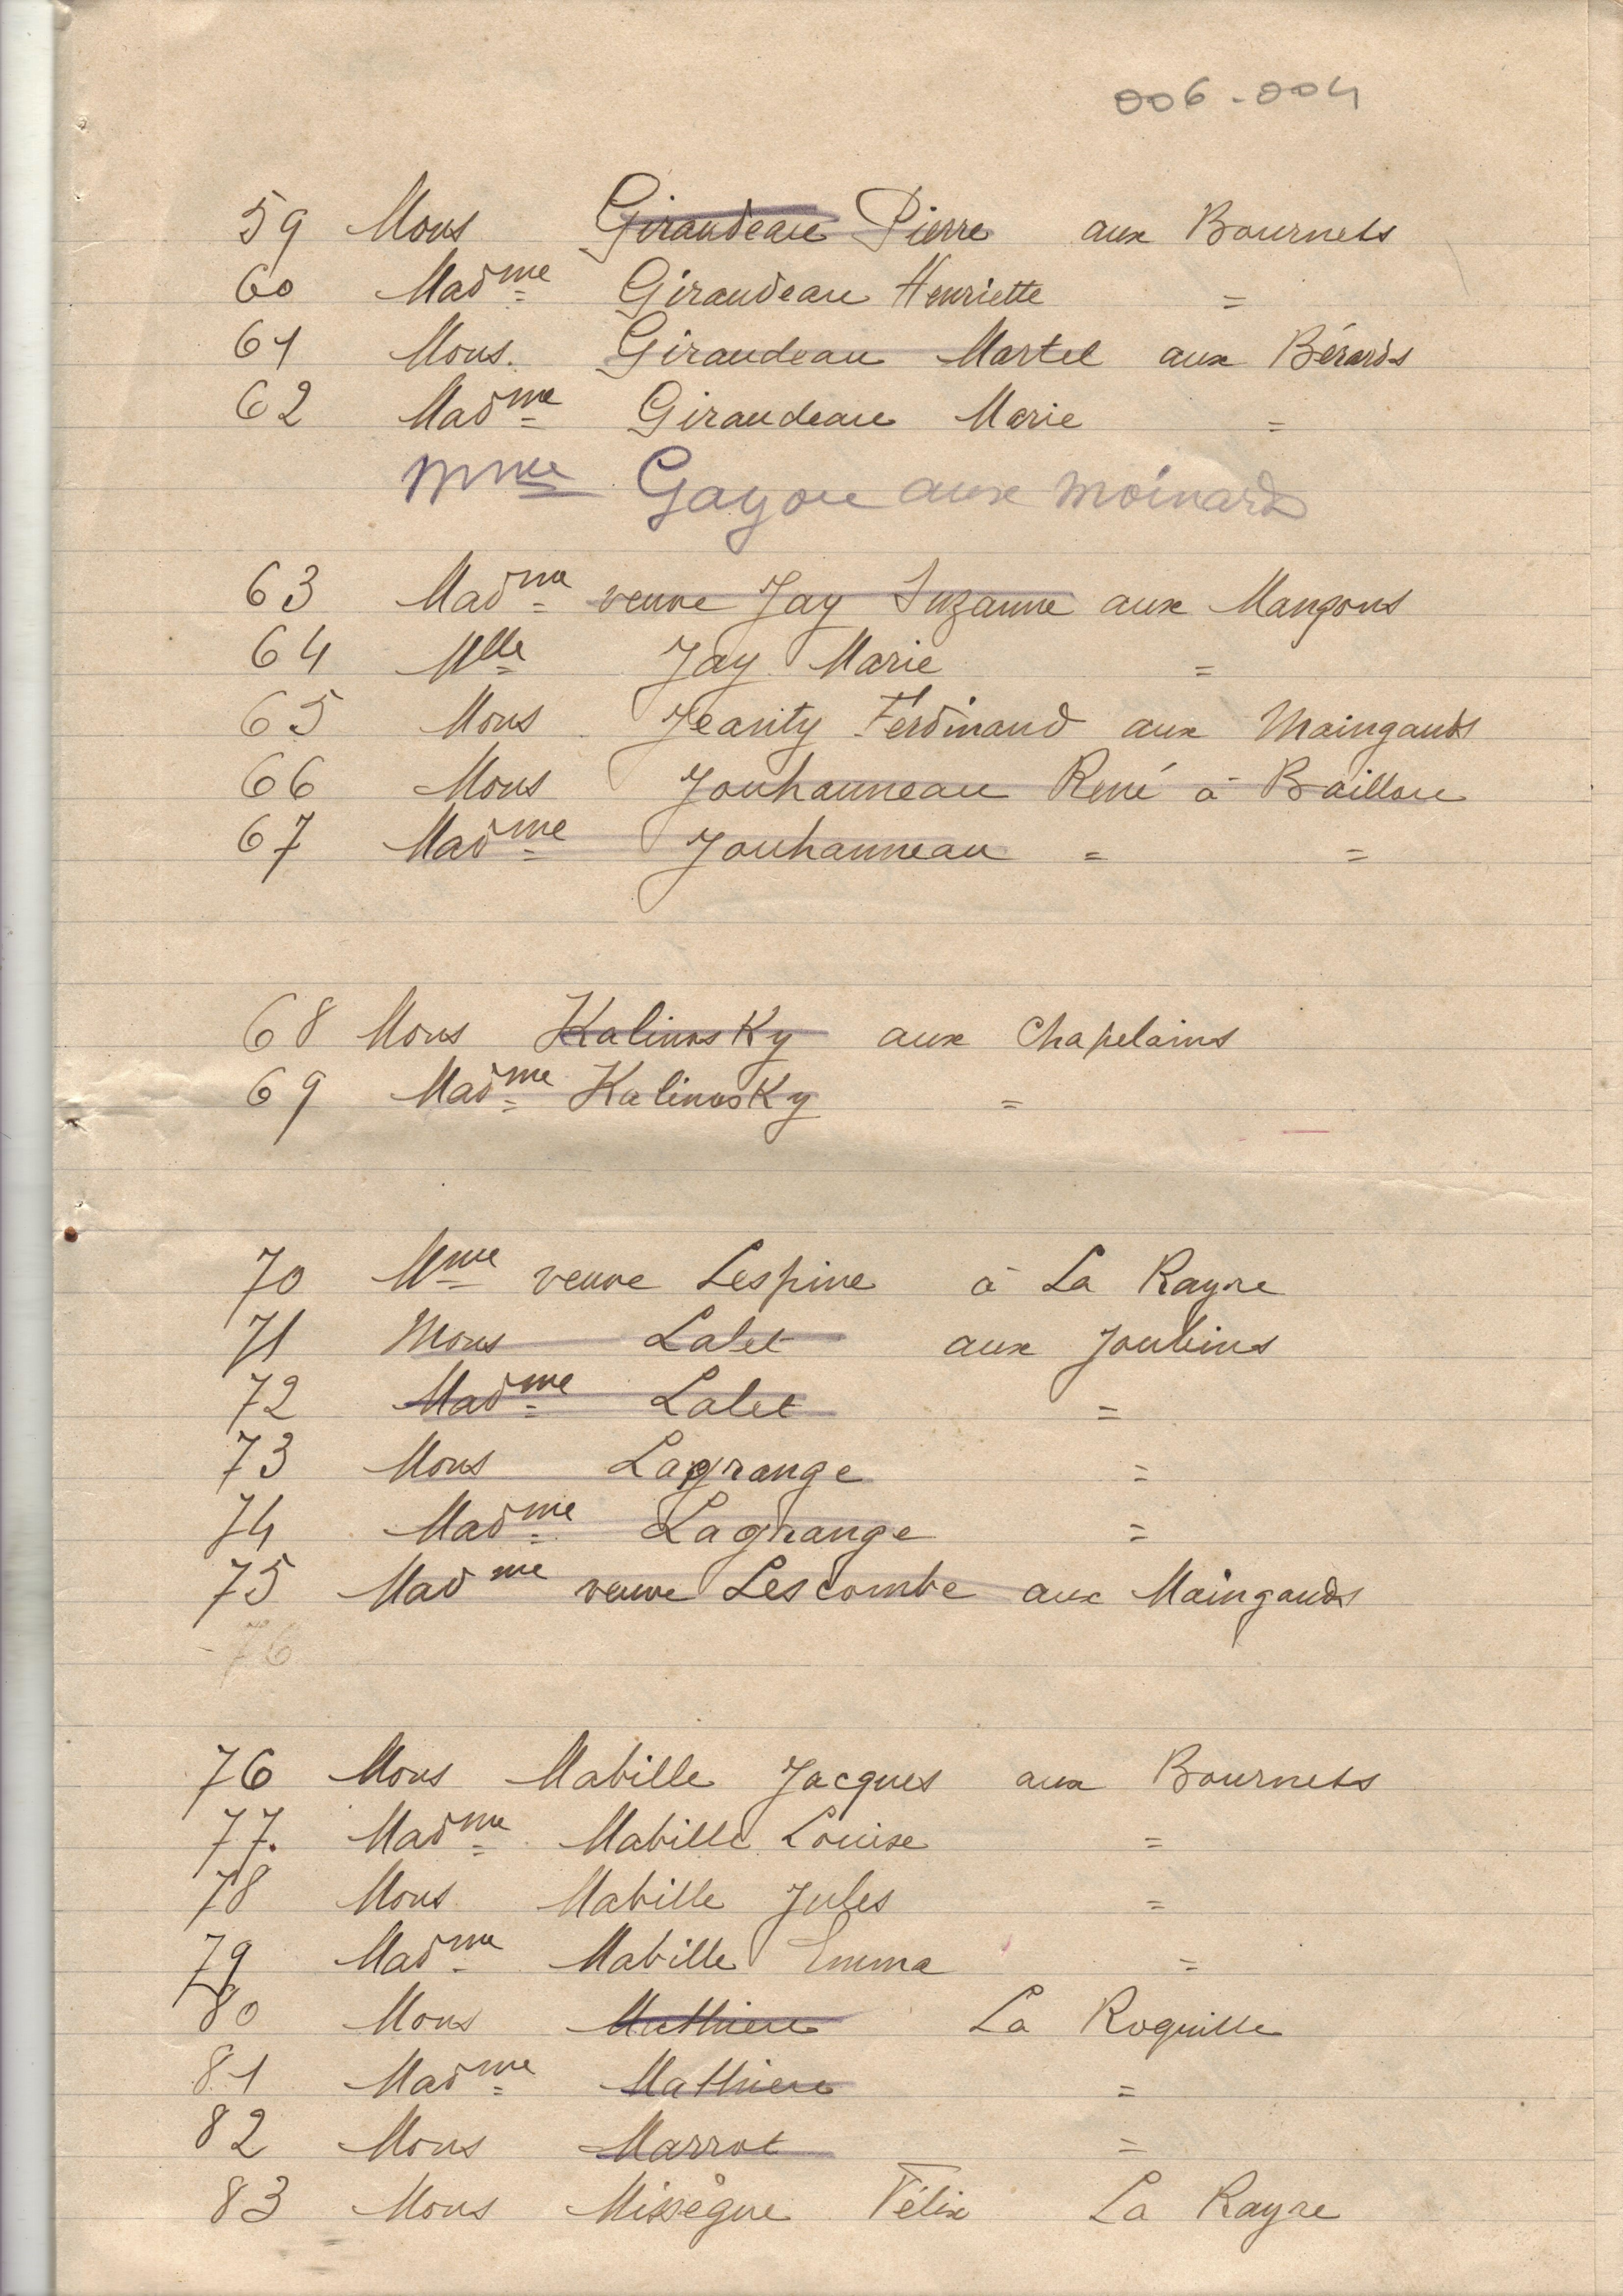 006-004
59 Mons Giraudeau Pierre aux Bournets
60 Madme Giraudeau Henriette =
61 Mons. Giraudeau Martel aux Bérards
62 Madme Giraudeau Marie =
Mme Gayou aux Moinards
63 Madme veuve Jay Suzanne aux Mangons
64 Mlle Jay Marie =
65 Mons Jearity Ferdinand aux Maingauds
66 Mons Jouhanneau René à Baillou
67 Madme Jouhanneau = =
68 Mons Kalinosky aux Chapelains
69 Madme Kalinosky =
70 Mme veuve Lespine à La Rayre
71 Mons Lalet aux Joubins
72 Madme Lalet =
73 Mons Lagrange =
74 Madme Lagrange =
75 Madme veuve Lescombe aux Maingauds
76
76 Mons Mabille Jacques aux Bournets
77. Madme Mabille Louise =
78 Mons Mabille Jules =
79 Madme Mabille Emma =
80 Mons Mathieu La Roquille
81 Madme Mathieu =
82 Mons Marrot =
83 Mons Missègue Félix La Rayre